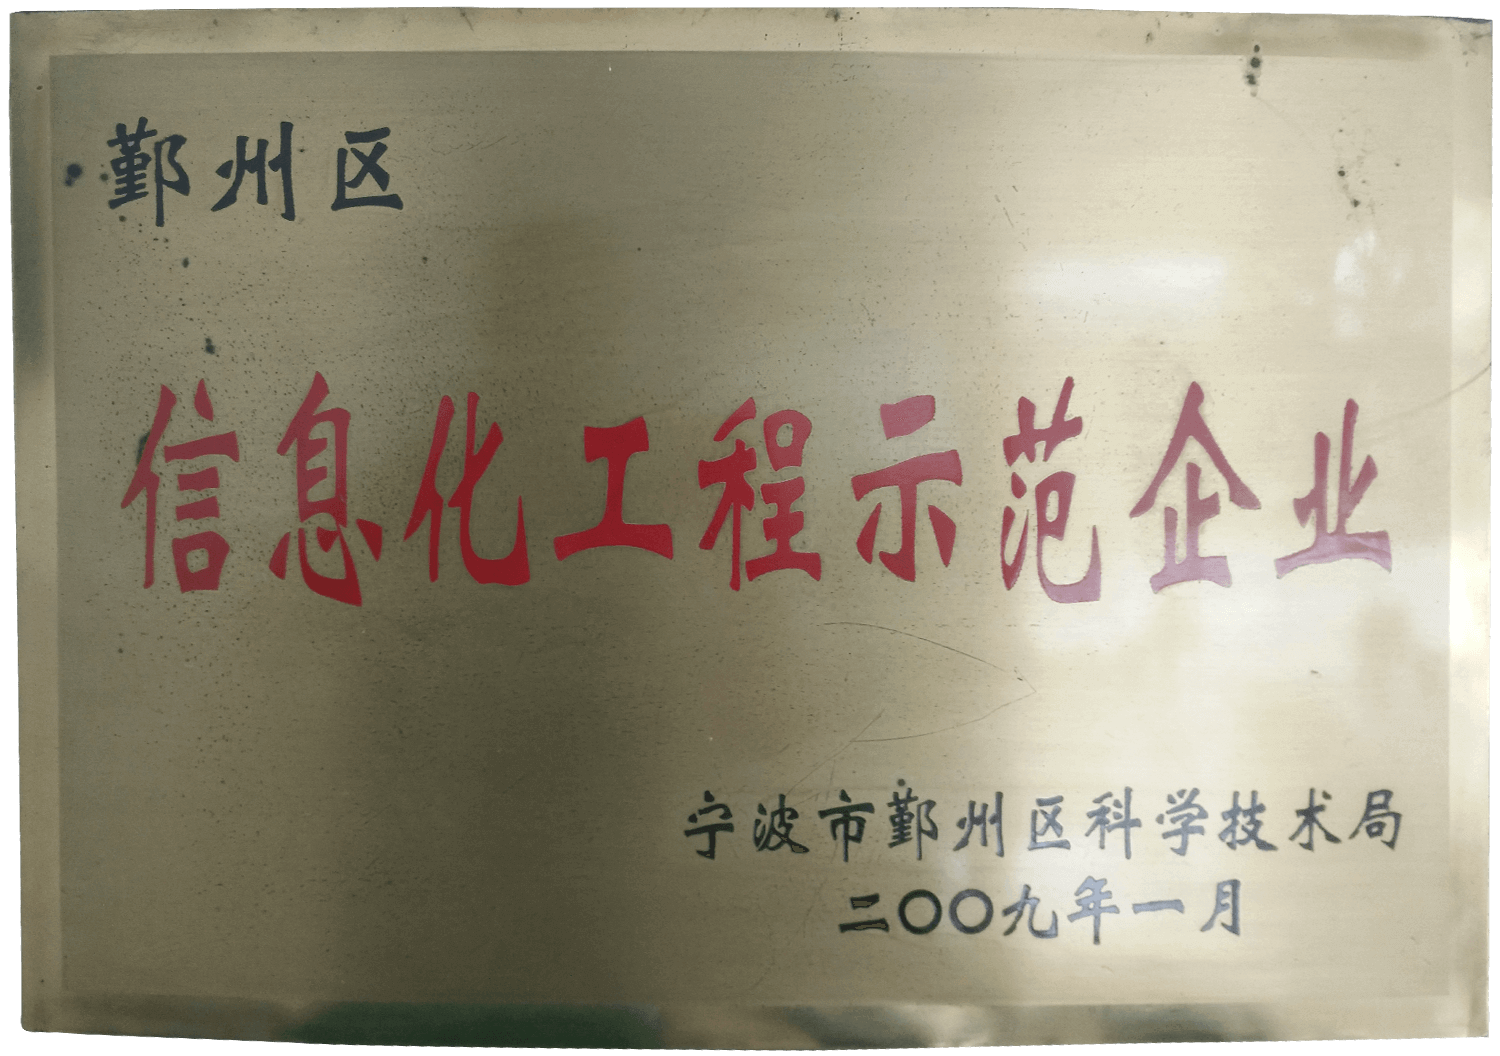 鄞州区
信息化工程示范企业
宁波市鄞州区科学技术局
二〇〇九年一月